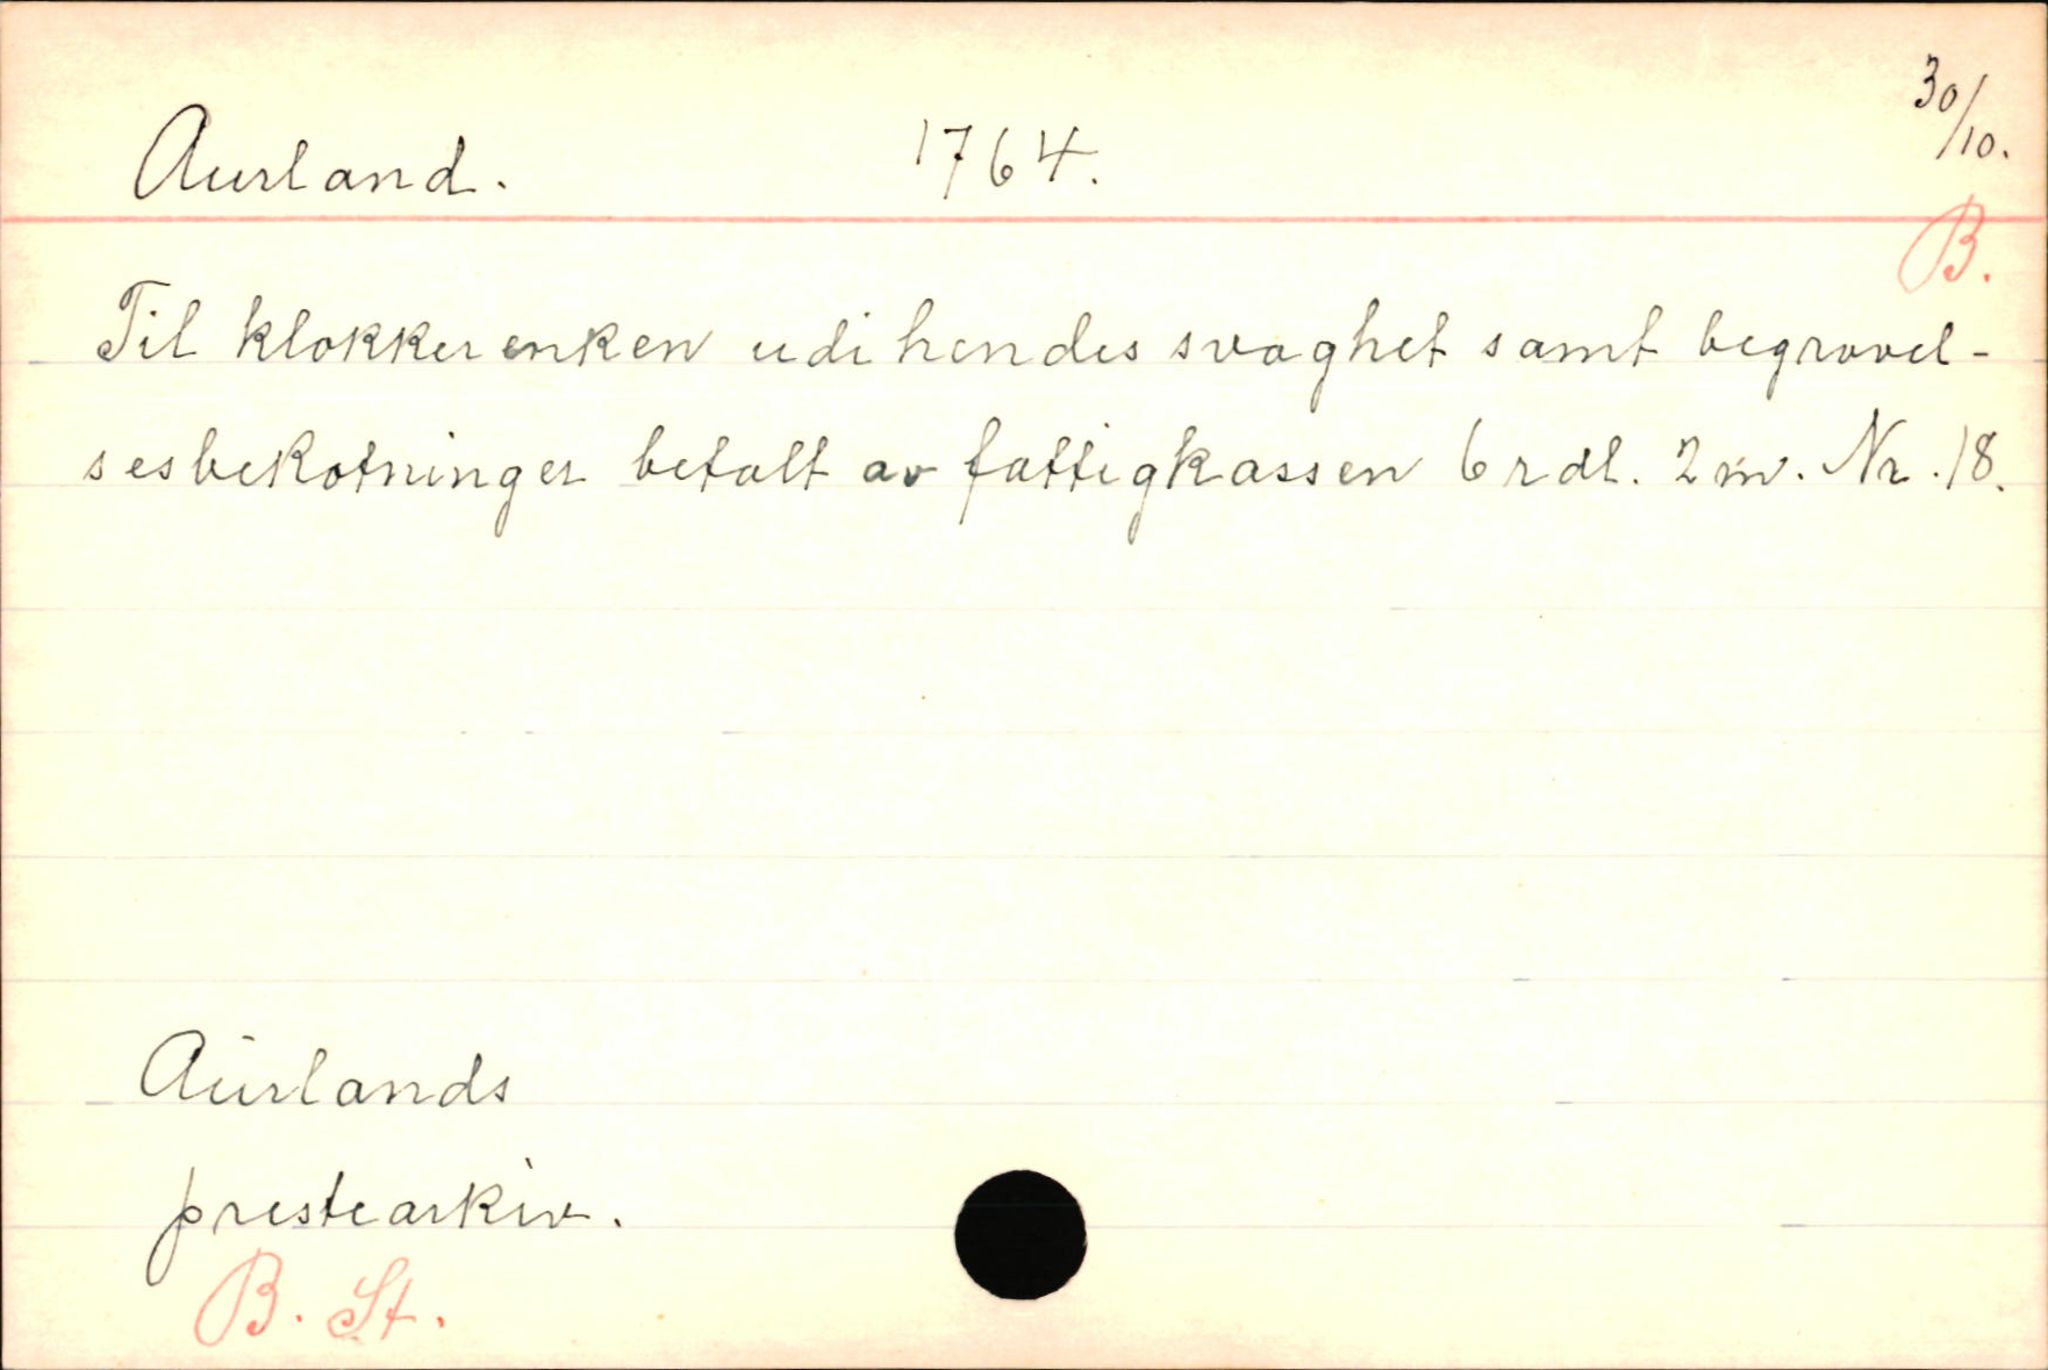 Aurland. 1764. 30/10.
B.
Til klokkerenken udi hendes svaghet samt begravel-
sesbekotninger betalt av fattigkassen 6 rdl. 2 m. Nr. 18.
Aurlands
prestearkiv.
B. St.